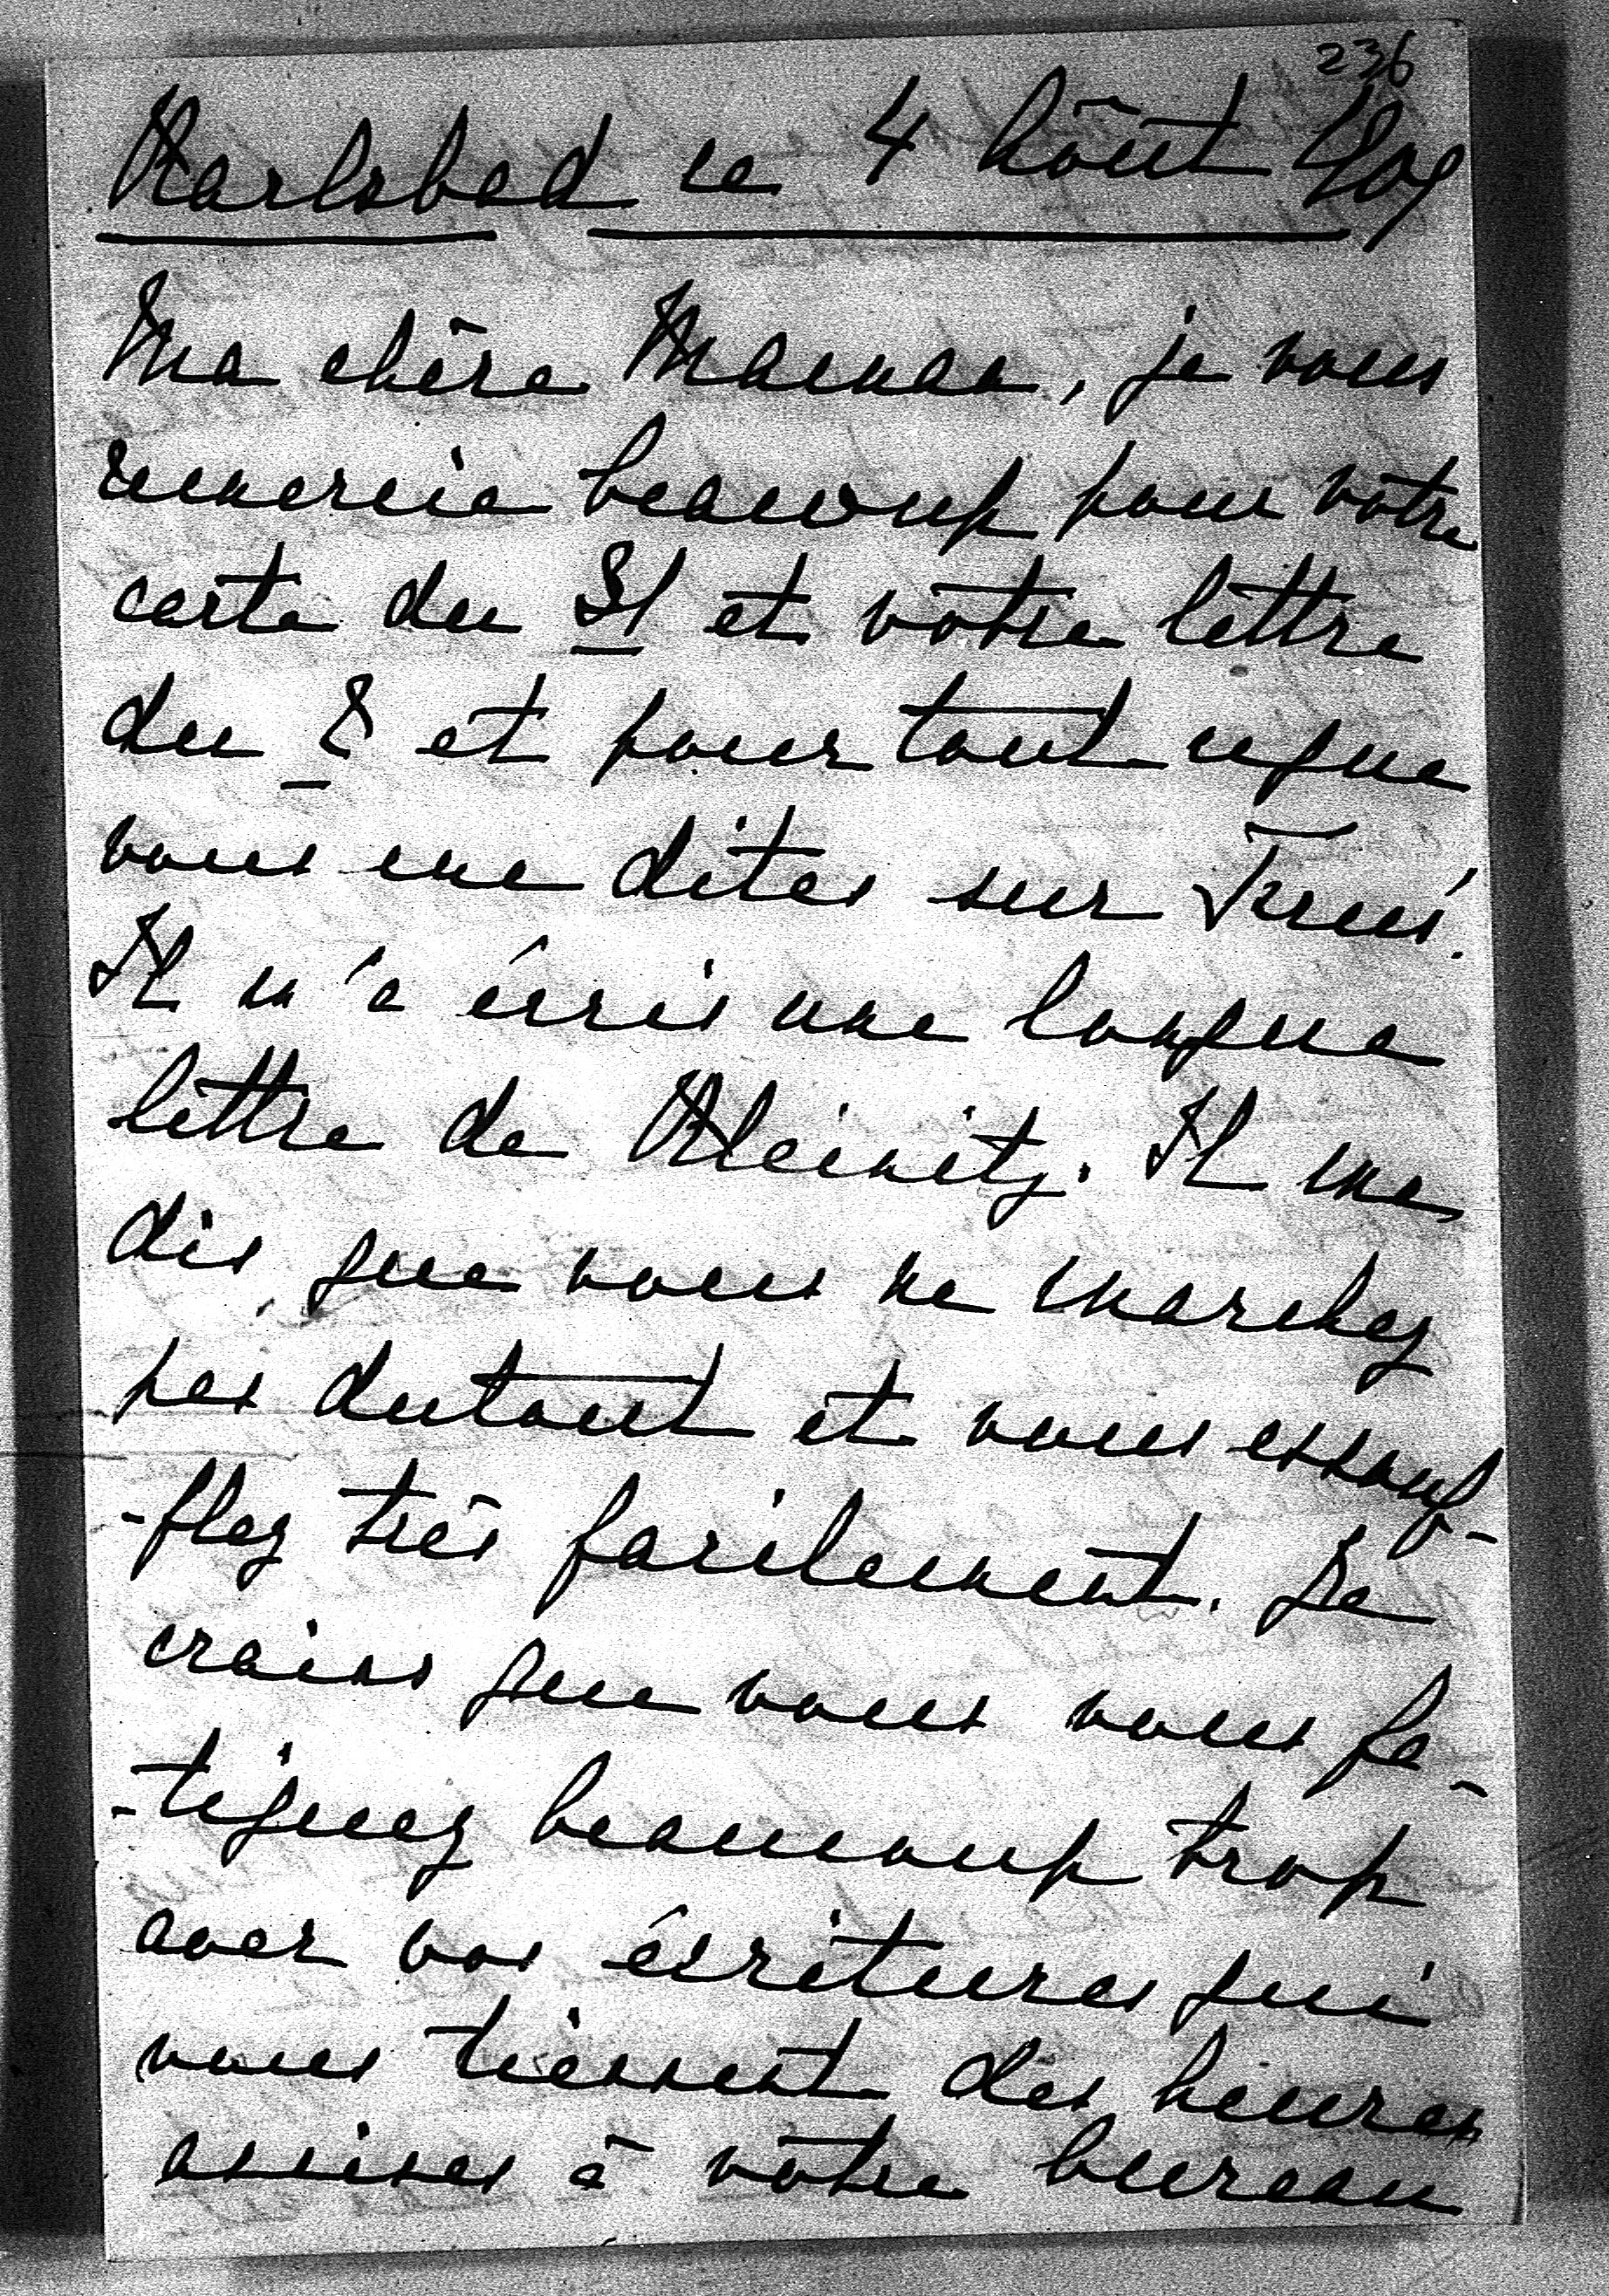 236
Karlsbad ce 4 hôut 909
Ma chère Maman, je vous
remercie beaucoup pour vôtre
carte du 31 et vôtre lettre
du 2 et pour tout ce que
vous me dites sur
Il m'a écris une longue
lettre de Kleinitz. Il me
dis que vous ne marchez
pas dutout et vous essouf-
-flez très facilement. Je
crains que vous vous fa-
-tiguez beaucoup trop
avec vos écritures qui
vous tiennent des heures
assises à vôtre bureau